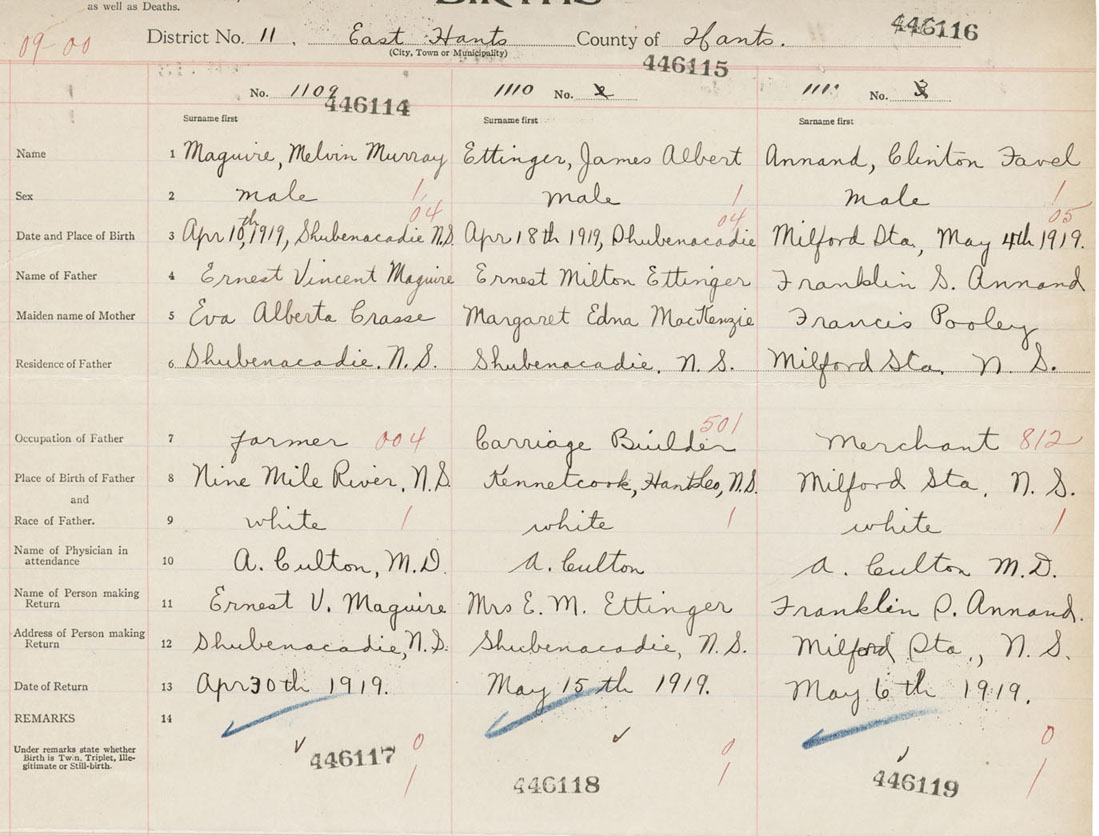 as well as Deaths.
BIRTHS
09-00 District No. 11. East Hants County of Hants. 446116
(City, Town or Municipality)
446115
No. 1109 1110 No. 2 1111 No. 3
446114
Surname first Surname first Surname first
Name 1 Maguire, Melvin Murray Ettinger, James Albert Annand, Clinton Favel
Sex 2 male 1 male 1 male 1
04 04 05
Date and Place of Birth 3 Apr 10th, 1919, Shubenacadie N.S. Apr 18th 1919, Shubenacadie Milford Sta., May 4th 1919.
Name of Father 4 Ernest Vincent Maguire Ernest Milton Ettinger Franklin S. Annand
Maiden name of Mother 5 Eva Alberta Crasse Margaret Edna MacKenzie Francis Pooley
Residence of Father 6 Shubenacadie. N. S. Shubenacadie. N. S. Milford Sta. N. S.
Occupation of Father 7 farmer 004 Carriage Builder 501 Merchant 812
Place of Birth of Father 8 Nine Mile River, N.S. Kennetcook, Hants Co, N.S. Milford Sta. N. S.
and
Race of Father. 9 white 1 white 1 white 1
Name of Physician in
attendance 10 A. Culton, M.D. A. Culton A. Culton M.D.
Name of Person making
Return 11 Ernest V. Maguire Mrs E. M. Ettinger Franklin S. Annand.
Address of Person making
Return 12 Shubenacadie, N.S. Shubenacadie, N.S. Milford Sta., N.S.
Date of Return 13 Apr 30th 1919. May 15th 1919. May 6th 1919.
REMARKS 14
Under remarks state whether
Birth is Twin, Triplet, Ille-
gitimate or Still-birth.
446117 0 0 0
1 446118 1 446119 1